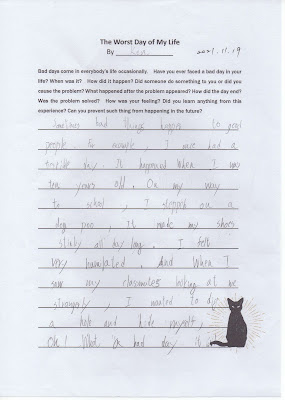 The Worst Day of My Life
By Ken 2021.11.19
Bad days come in everybody's life occasionally. Have you ever faced a bad day in your
life? When was it? How did it happen? Did someone do something to you or did you
cause the problem? What happened after the problem appeared? How did the day end?
Was the problem solved? How was your feeling? Did you learn anything from this
experience? Can you prevent such thing from happening in the future?
Sometimes bad things happen to good
people. For example, I once had a
terrible day. It happened when I was
ten years old. On my way
to school, I stepped on a
dog poo, It made my shoes
stinky all day long. I felt
very humiliated. And When I
saw my classmates looking at me
strangely, I wanted to dig
a hole and hide myself.
Oh! What a bad day it